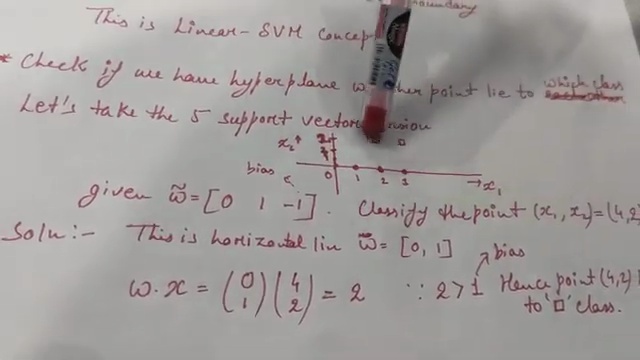 boundary
This is Linear-SVM Concep
* Check if we have hyperplane point lie to which class
Let's take the 5 support vector
x₂ 2
1
bias 0 1 2 3 x₁
given w̃ = [0 1 -1]. Classify the point (x₁, x₂) = (4,2
Soln:- This is horizontal lin w̃ = [0, 1] bias
w.x = (0 1) (4 2) = 2 ∵ 2 > 1 Hence point (4,2)
to '□' class.